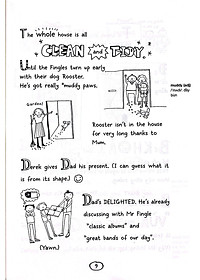 The whole house is all
CLEAN and TIDY.
Until the Fingles turn up early
with their dog Rooster.
He's got really *muddy paws.
Gardens
Rooster isn't in the house
for very long thanks to
Mum.
Derek gives Dad his present. (I can guess what it
is from its shape.)
Dad's DELIGHTED. He's already
discussing with Mr Fingle
"classic albums" and
"great bands of our day".
(Yawn.)
9